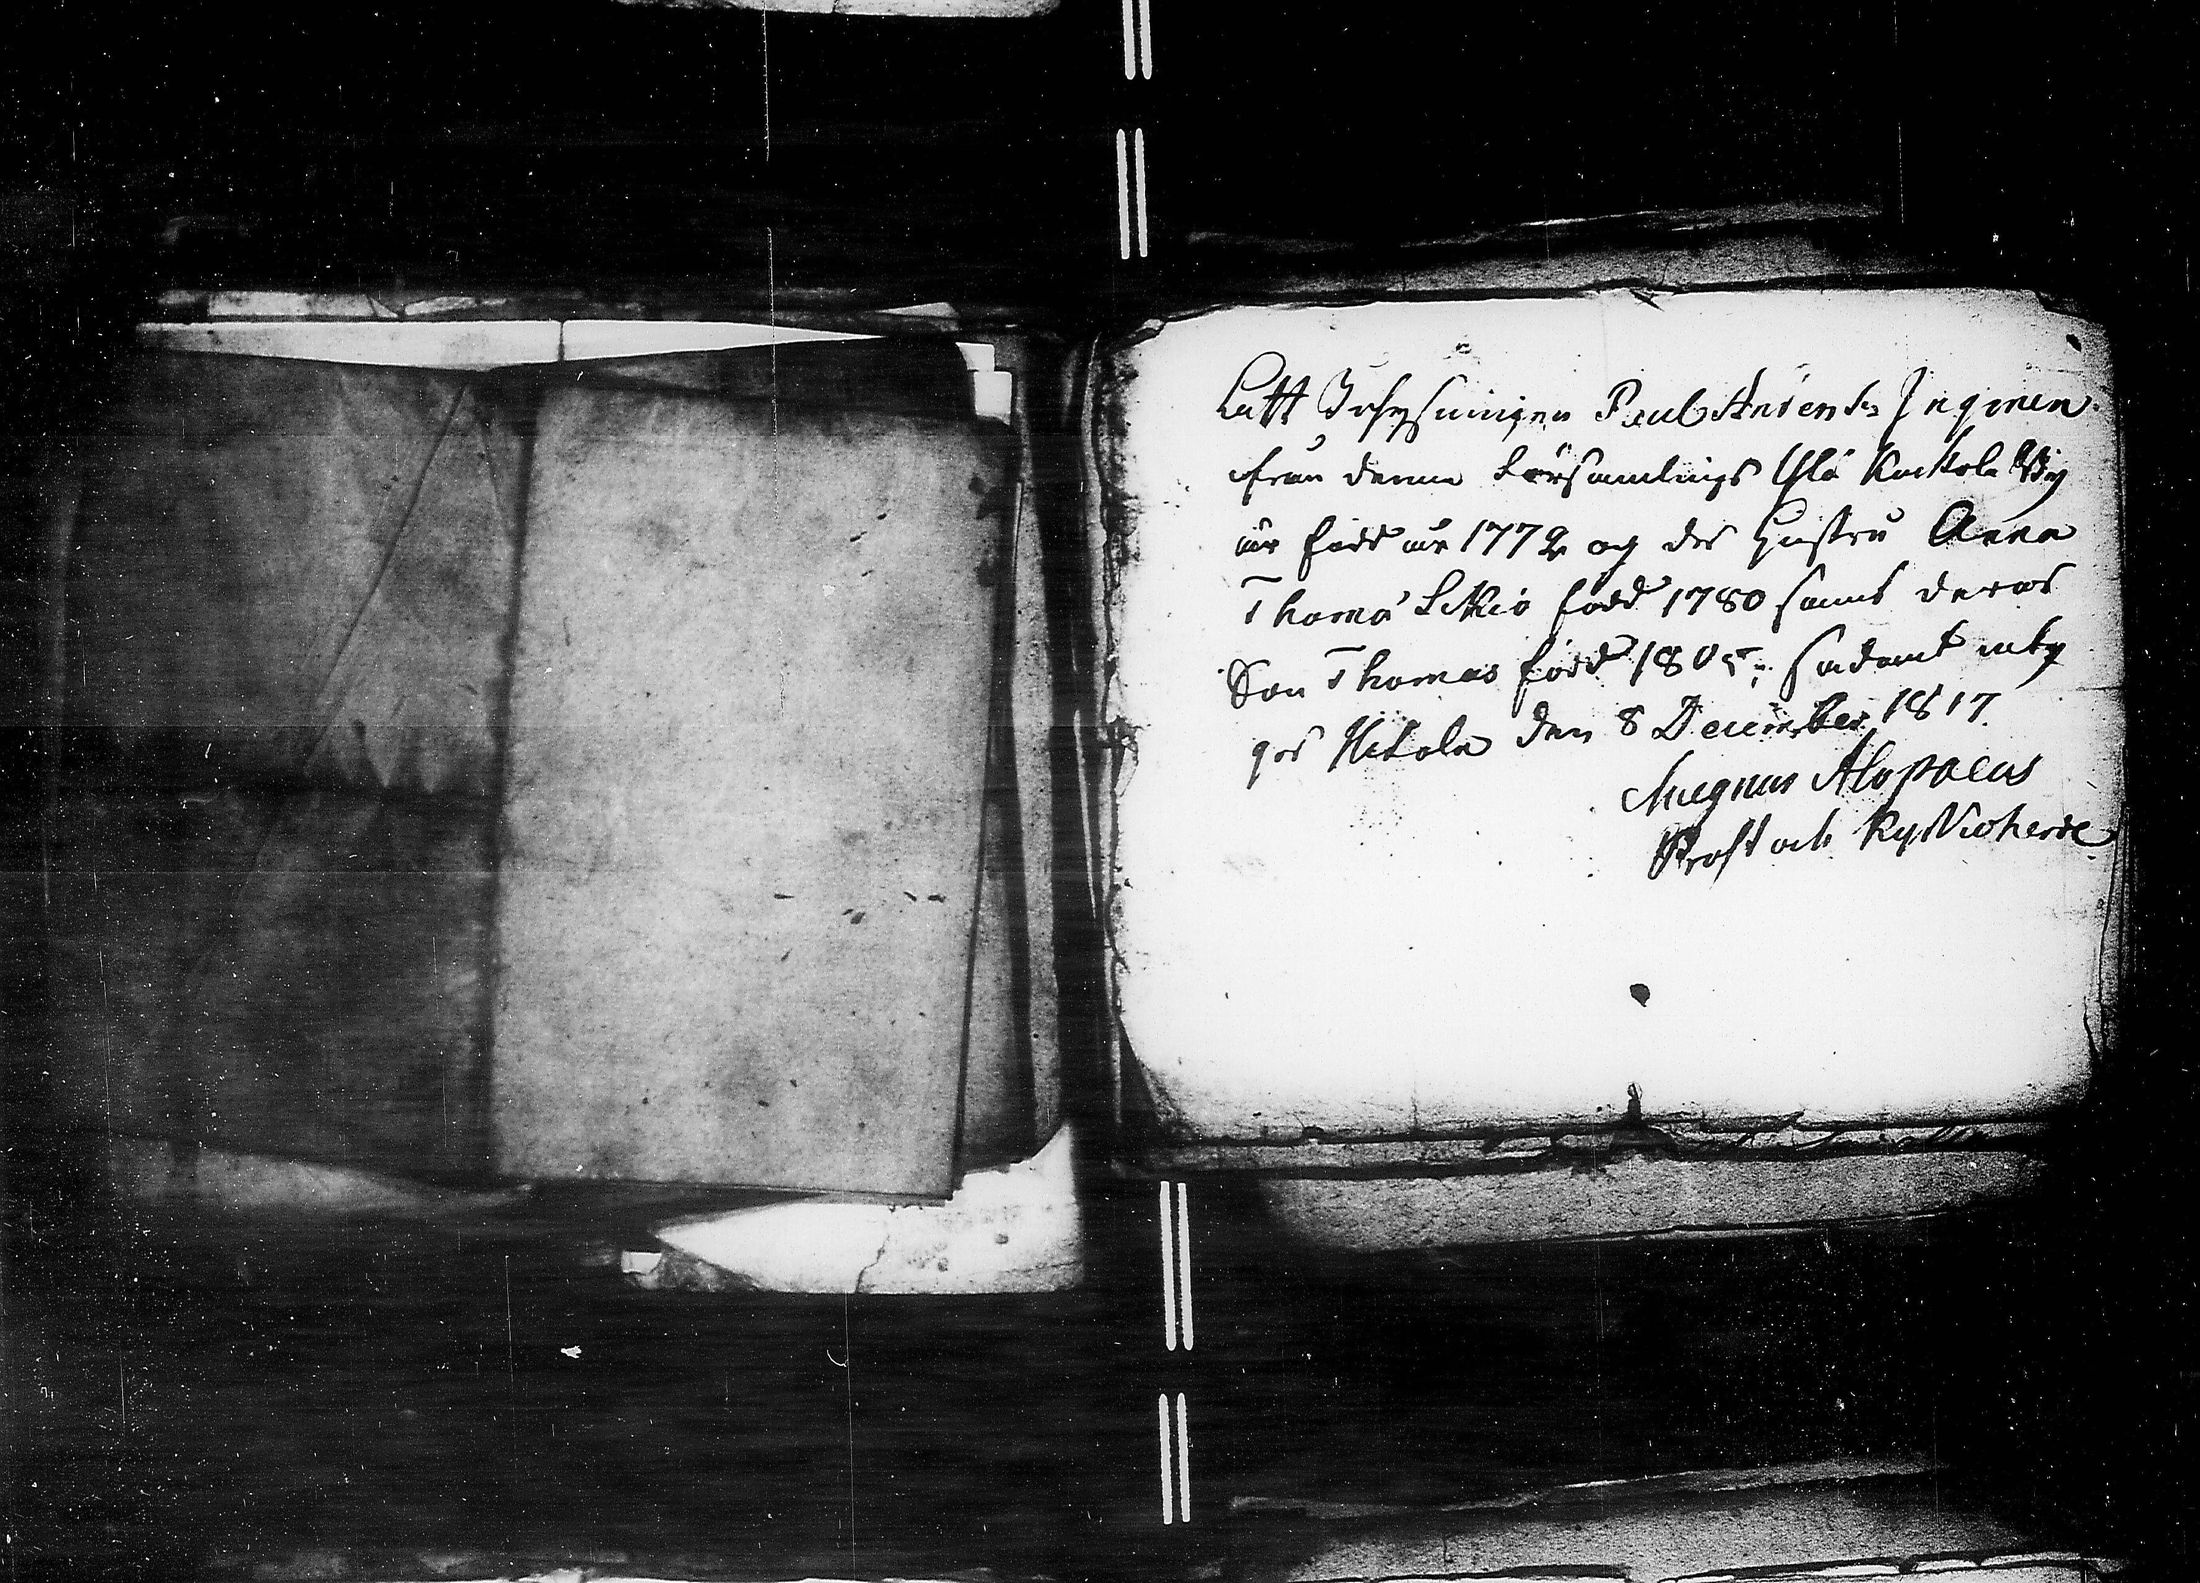 Att Inhysningen Paul Anders S. Inginen
från denna Församlings Ylä Kockola By
är född år 1772 og des Hustru Anna
Thoma Sikiö född 1780 samt deras
Son Thomas född 1805; sådant intÿ
gas Hitola den 8 December 1817.
Magnus Alopaeus
Prost och Kyrkioherde